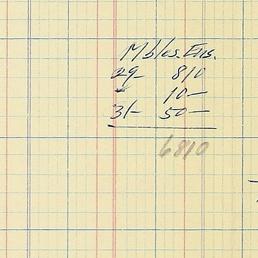 Mbles. Ens.
29 810
" 10-
31- 50-
6810